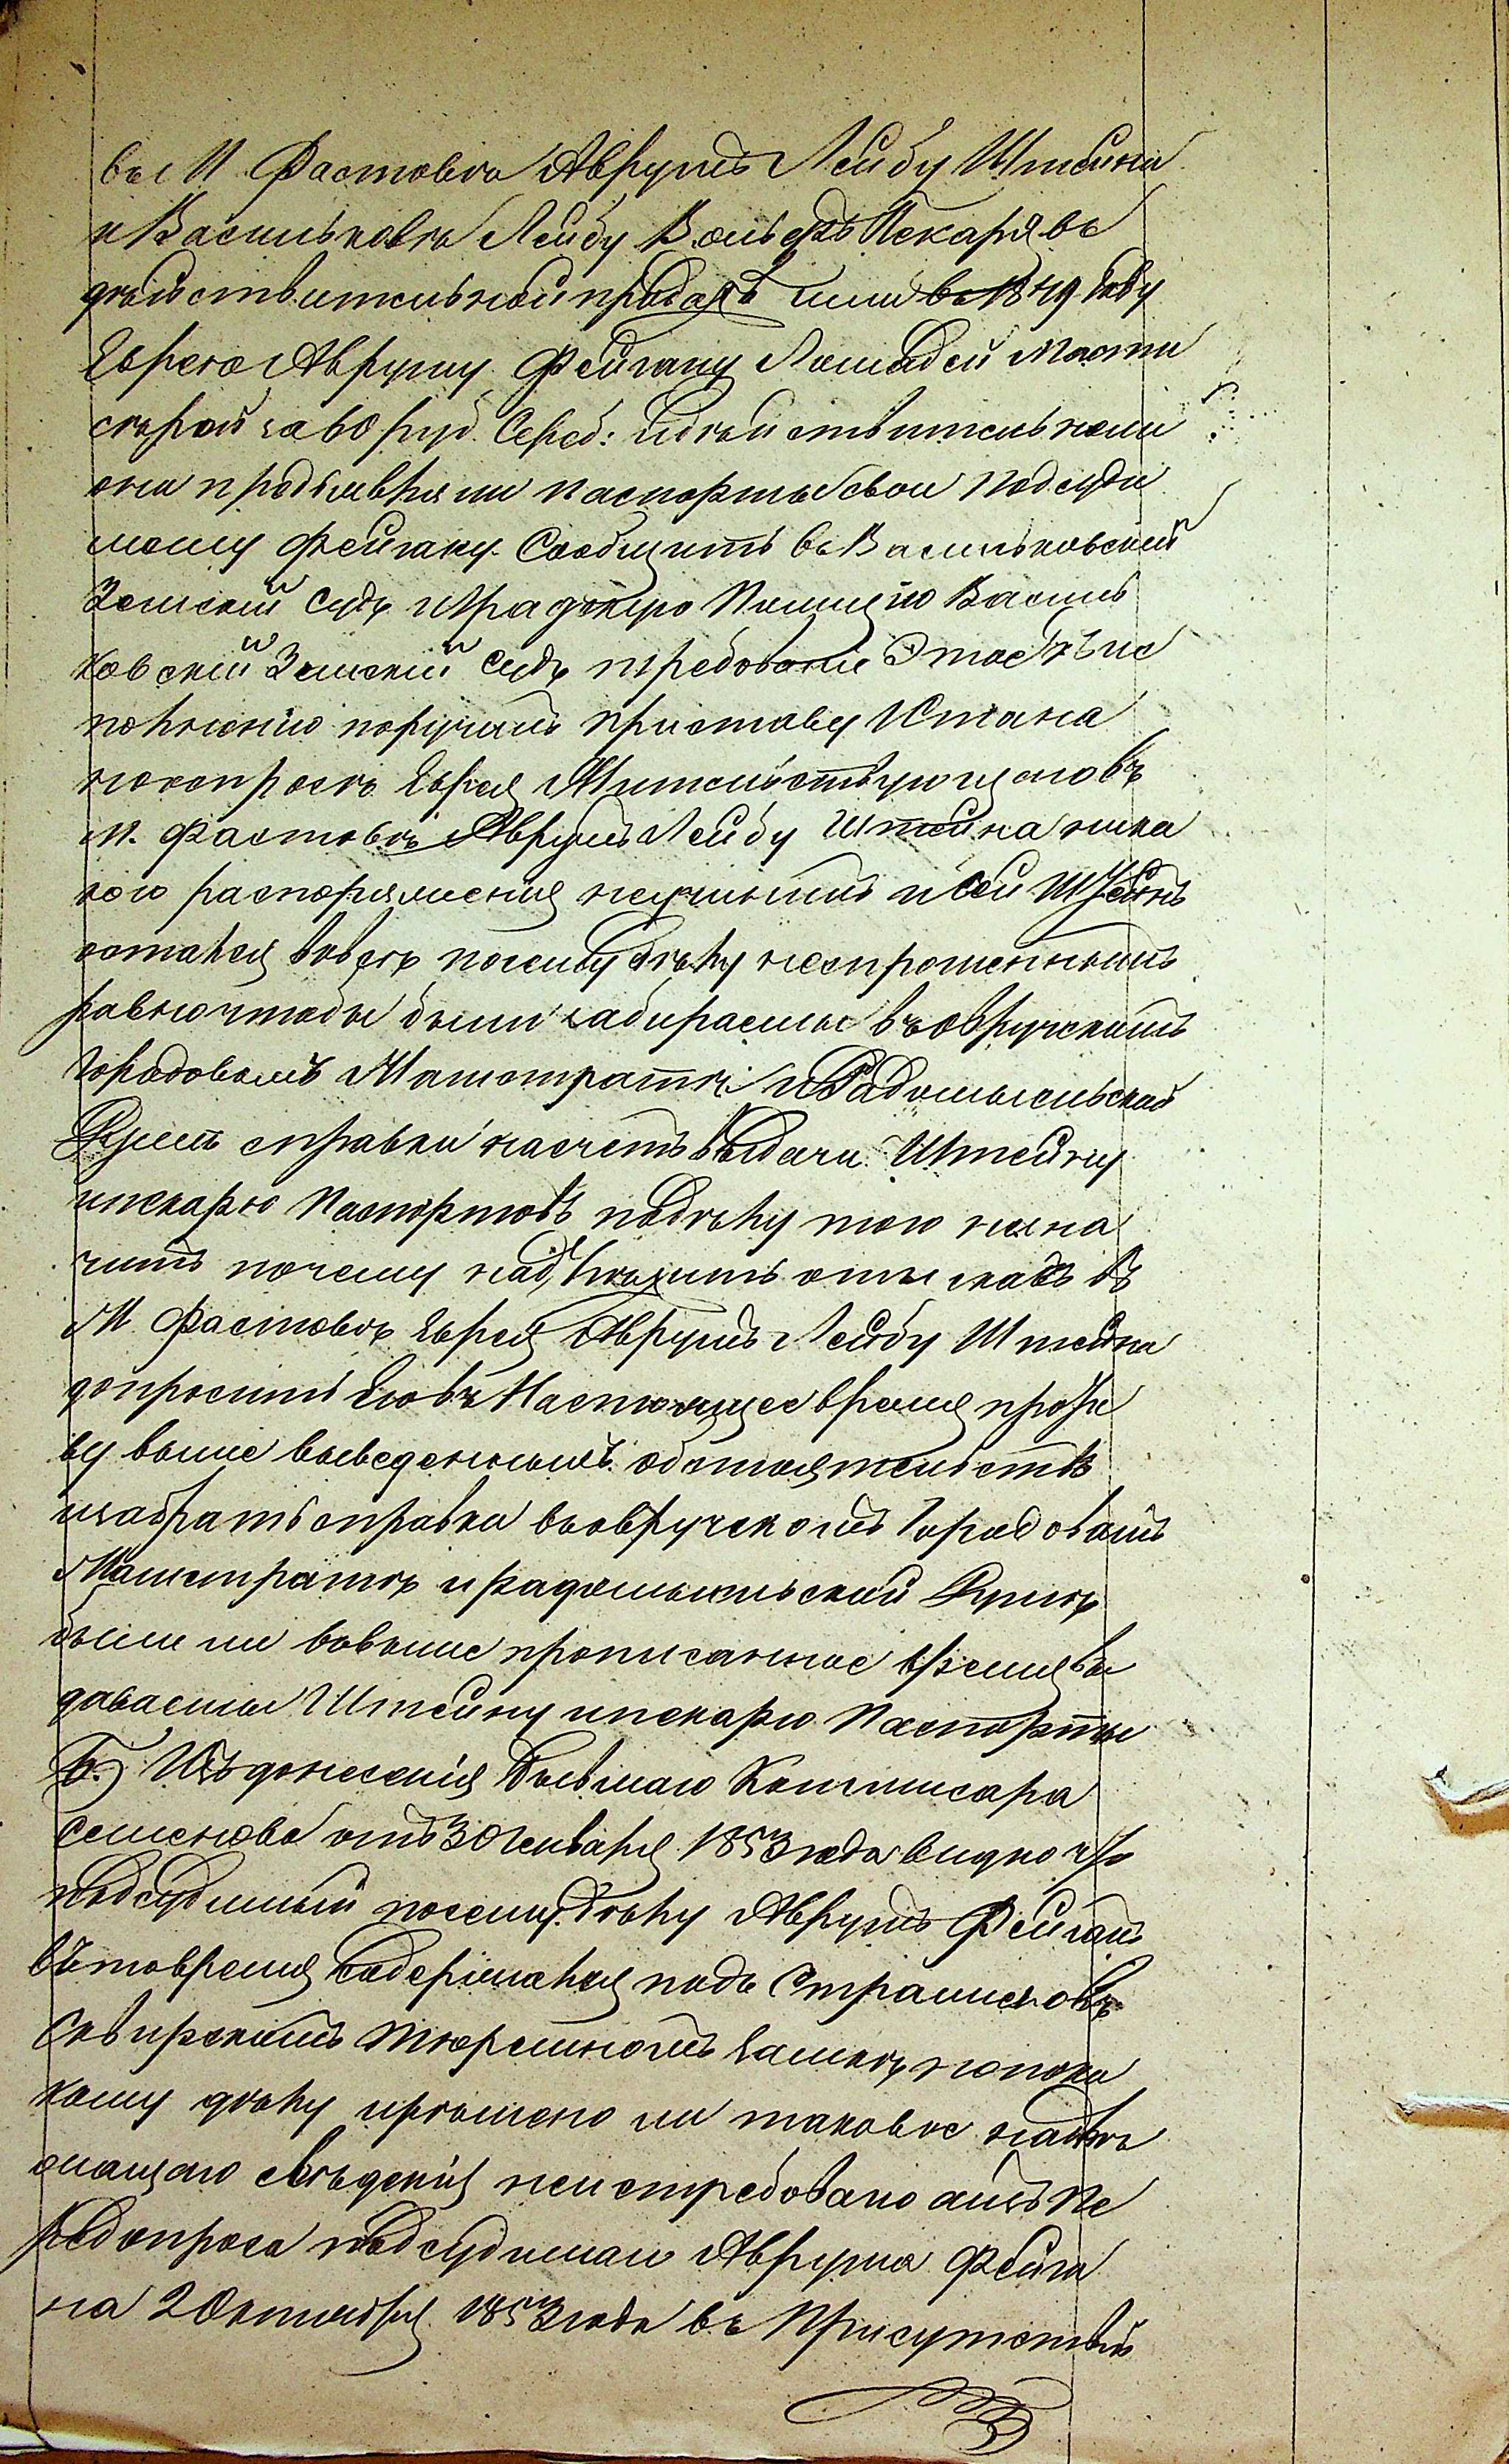 въ М. Фастовѣ Аврумъ Лейбу Штейна
и Васильковѣ Лейбу Вольфъ Пекаря въ
дѣйствительной продажѣ ими въ 1849 году
Еврею Авруму Фейгану Лошадей масти
сѣрой за 60 руб. Сереб: и дѣйствительноли
они предъявляли паспорты свои подсуди
мому Фейгану. Сообщить въ Васильковскій
Земскій Судъ и Градскую Полицію Василь
ковскій Земскій Судъ требованіе это къ ис
полненію поручилъ Приставу 1 Стана
но вопросѣ Еврея Жительствующаго въ
М. Фастовѣ Аврумъ Лейбу Штейна ника
кого распоряженія неучинилъ и сей Штейнъ
остался вовсе посему дѣлу неспрошеннымъ
равно чтобы были забираемы въ Овручскомъ
Городовомъ Магистратѣ и Радомысльской
Думѣ справки насчетъ выдачи Штейну
и пекарю Паспортовъ по дѣлу того незна
чить почему надлежитъ отыскавъ въ
М. Фастовѣ Еврея Аврумъ Лейбу Штейна
допросить Его въ Настоящее время про
ву выше выведеннымъ обстоятельств
и забрать справки въ Овручскомъ Городовомъ
Магистратѣ и Радомысльской Думѣ
были ли вовыше прописанное время вы
даваемы Штейну и пекарю Паспорты
Б.) Изъ донесенія бывшаго Коммисара
Семенова отъ 30 Генваря 1853 года видно что
подсудимый посему дѣлу Аврумъ Фейганъ
въ то время содержался подъ Стражею въ
Сквирскомъ Тюремномъ Замкѣ но по ка
кому дѣлу и рѣшено ли таковое надле
жащаго свѣденія неистребовано а изъ пе
редопроса подсудимаго Аврума Фейга
на 2 Октября 1853 года въ Присутствіи